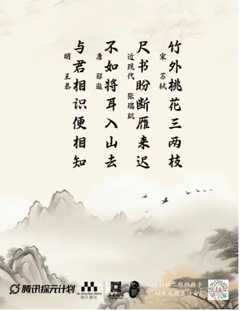 竹外桃花三两枝
宋 苏轼
尺书盼断雁来迟
近现代 张瑞玑
不如将耳入山去
唐 邵谒
与君相识便相知
明 王恭
腾讯探元计划